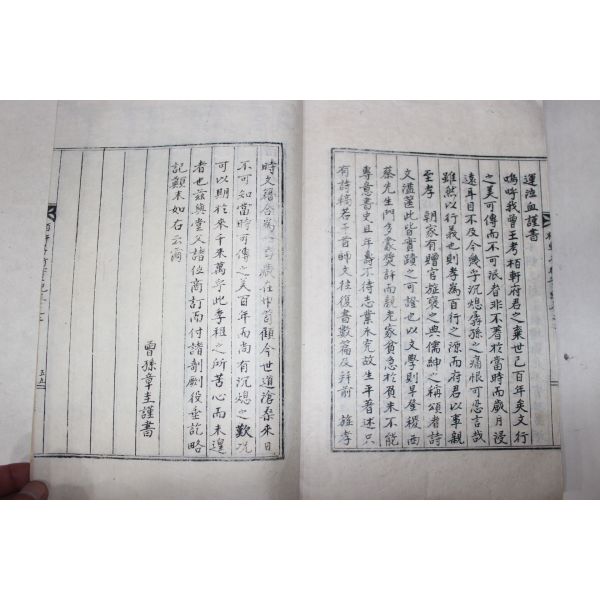 運泣血謹書
嗚呼我曾王考栢軒府君之棄世已百年矣文行
之美可傳而不可泯者非不著於當時而歲月浸
遠耳目不及今幾乎沉熄孱孫之痛恨可忍言哉
雖然以行義也則孝為百行之源而府君以事親
至孝 朝家有贈官旌褒之典儒紳之稱頌者詩
文溢篋此皆實蹟之可證也以文學則早登稷西
蔡先生門多蒙獎許而親老家貧急於負米不能
專意書史且年壽不待志業未究故生平著述只
有詩稿若干首師文往復書數篇及幷前 旌孝
時文穪合為一 藏在巾笥顧今世道滄桑來日
不可知當時可傳之美百年而尚有沉熄之歎况
可以期於來千來萬乎此季祖之所苦心而未遑
者也玆與堂父諸位商訂而付諸剞劂役垂訖略
記顚末如右云爾
曾孫章圭謹書